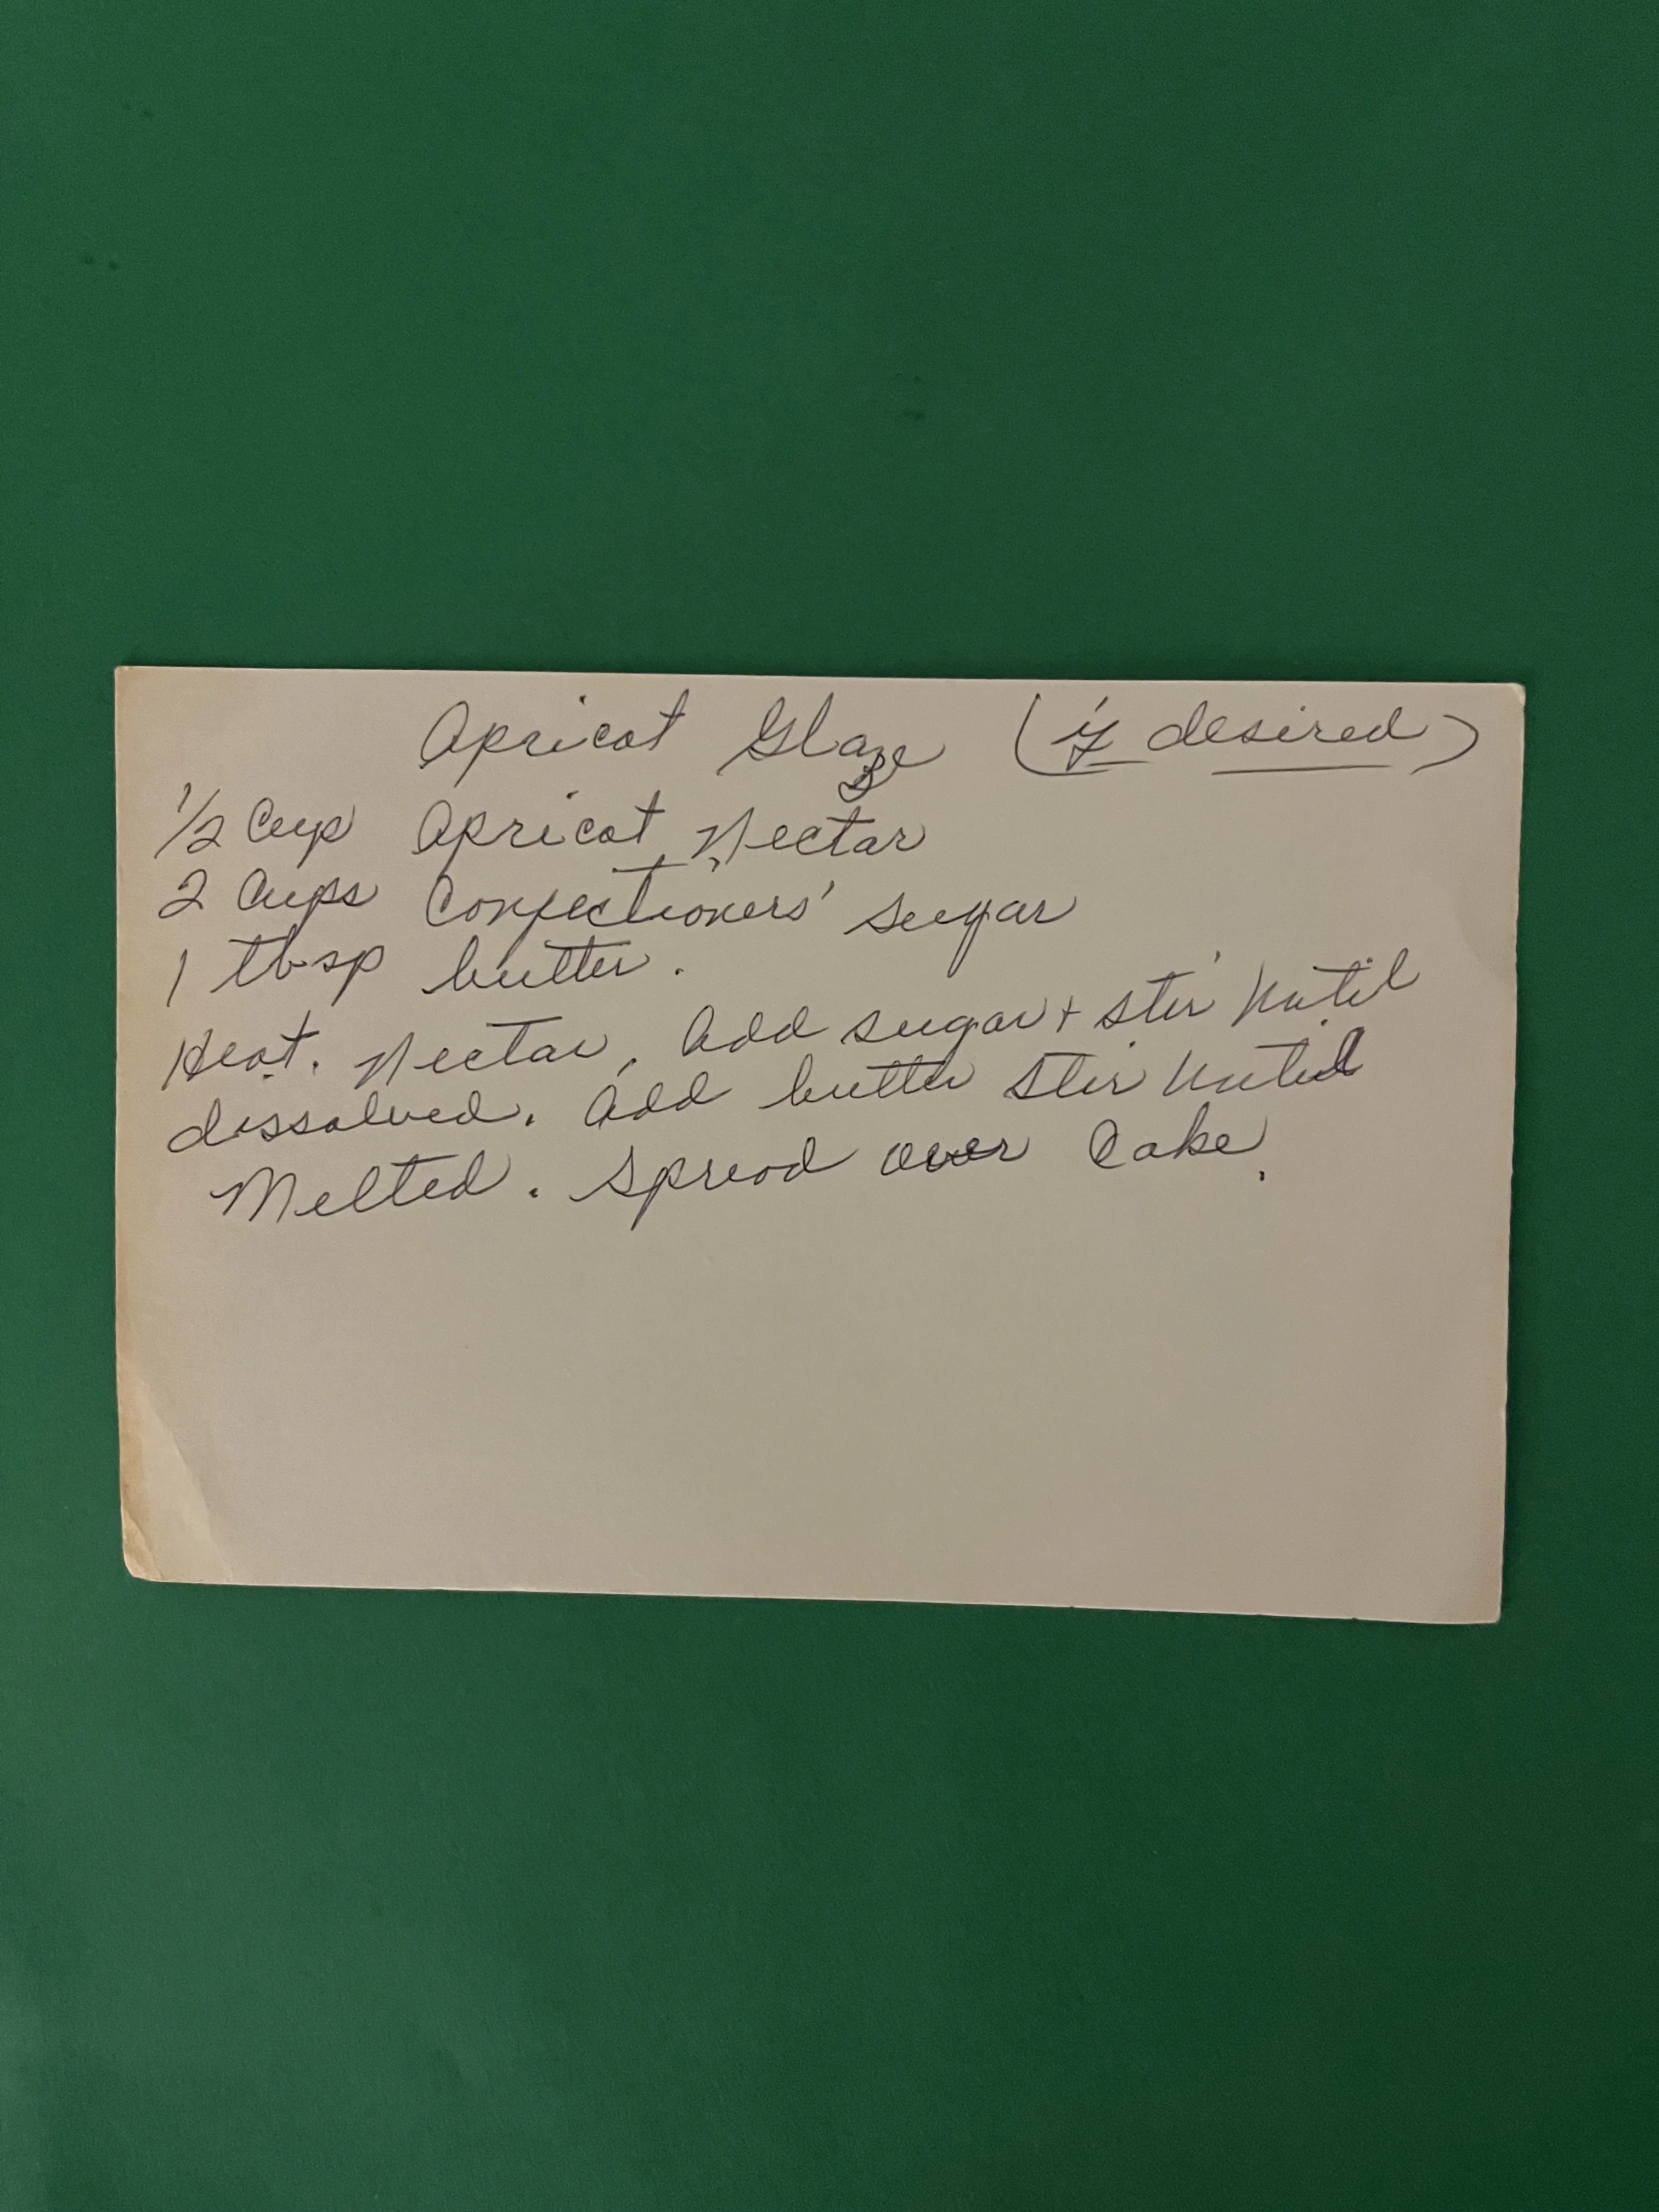 Apricot Glaze (if desired)
1/2 Cup Apricot Nectar
2 Cups Confectioners' sugar
1 tbsp butter.
Heat. Nectar, Add sugar + stir until
dissolved. Add butter stir until
Melted. Spread over Cake.